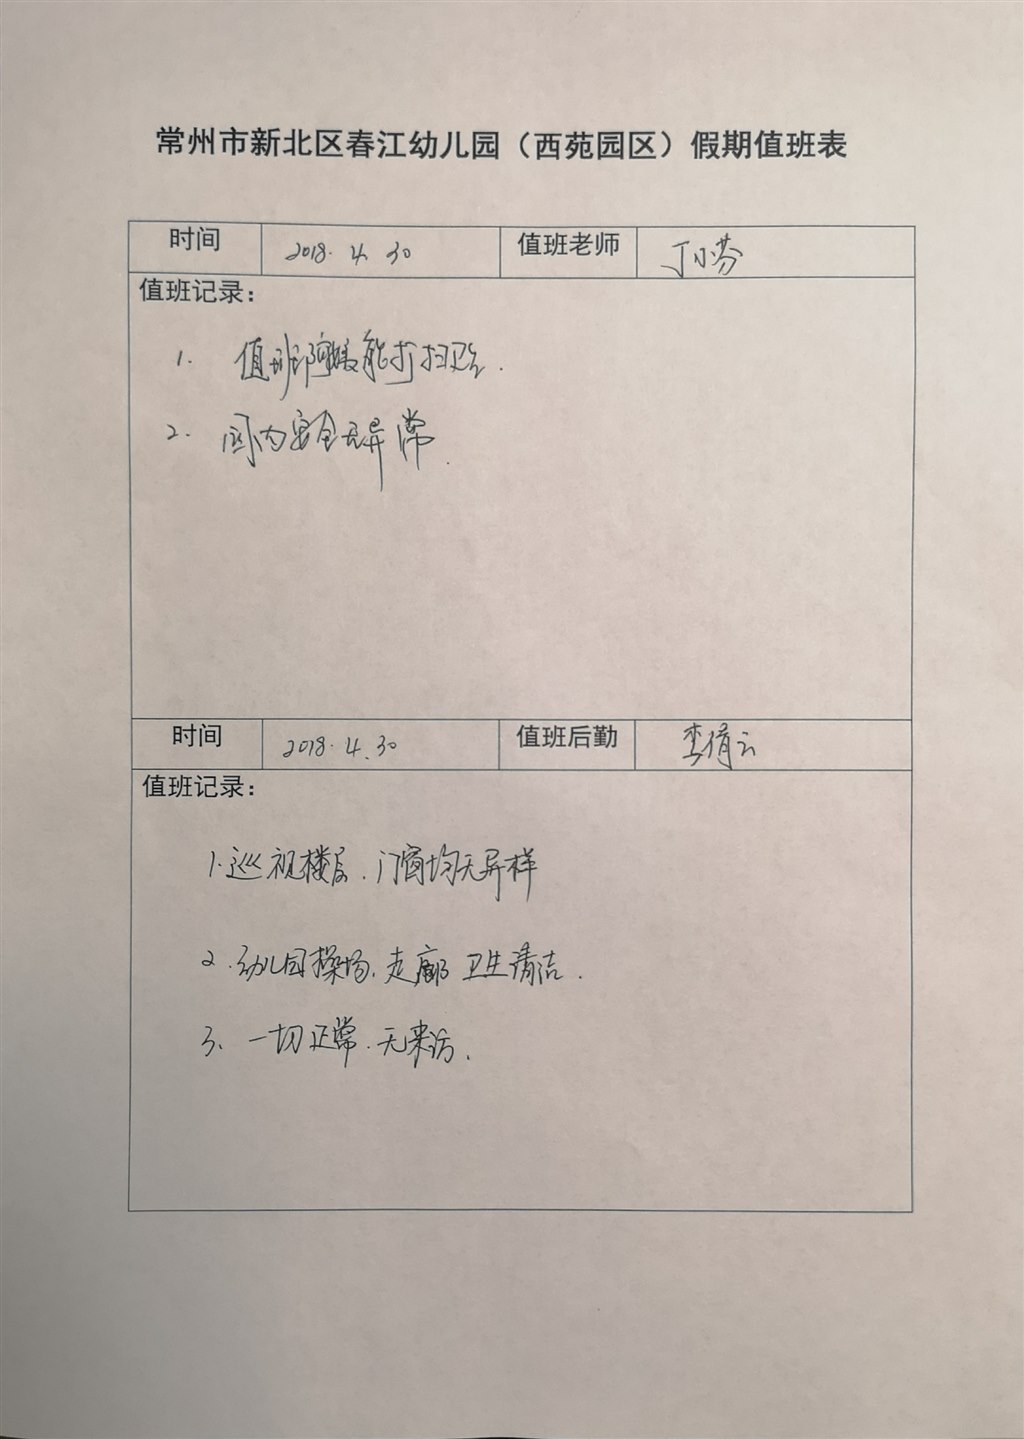 常州市新北区春江幼儿园（西苑园区）假期值班表
时间 2018.4.30 值班老师 丁小芬
值班记录：
1. 值班阿姨能打扫卫生.
2. 园内安全无异常.
时间 2018.4.30 值班后勤 李倩云
值班记录：
1.巡视楼层.门窗均无异样
2.幼儿园操场.走廊卫生清洁.
3.一切正常.无来访.